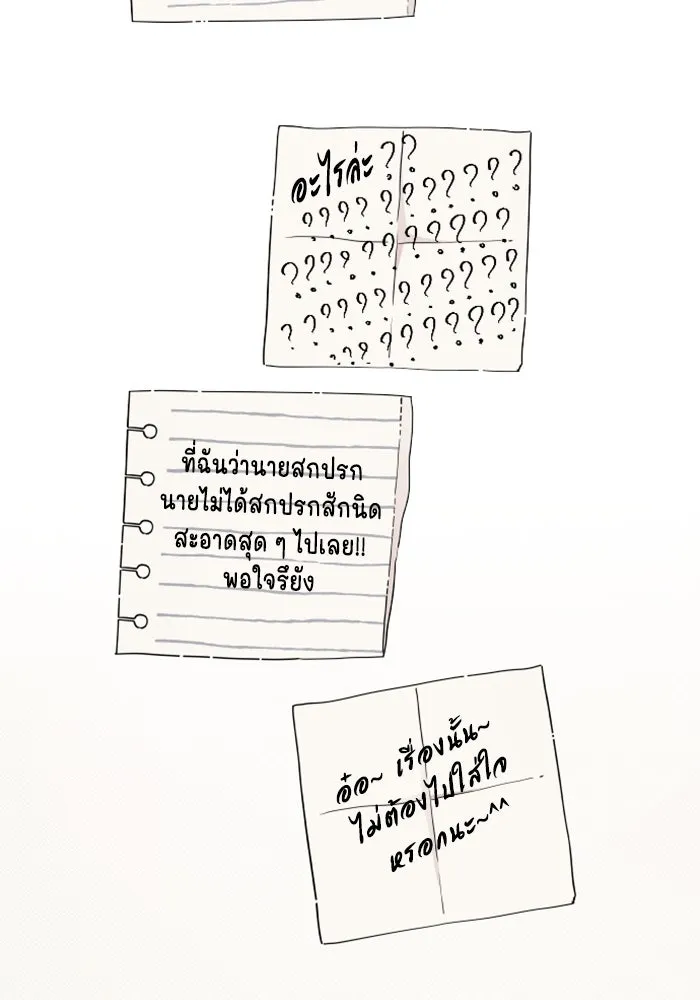 อะไรล่ะ??
?????????
?????????
?????????
???????????
????????????
????????
ที่ฉันว่านายสกปรก
นายไม่ได้สกปรกสักนิด
สะอาดสุด ๆ ไปเลย!!
พอใจรึยัง
อ๋อ~ เรื่องนั้น~
ไม่ต้องไปใส่ใจ
หรอกนะ~^^